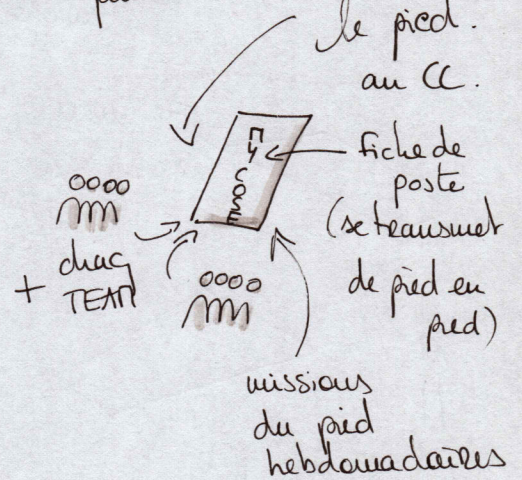 le pied.
au CC.
fiche de
poste
(se transmet
de pied en
pied)
+ chaq
TEAM
missions
du pied
hebdomadaires